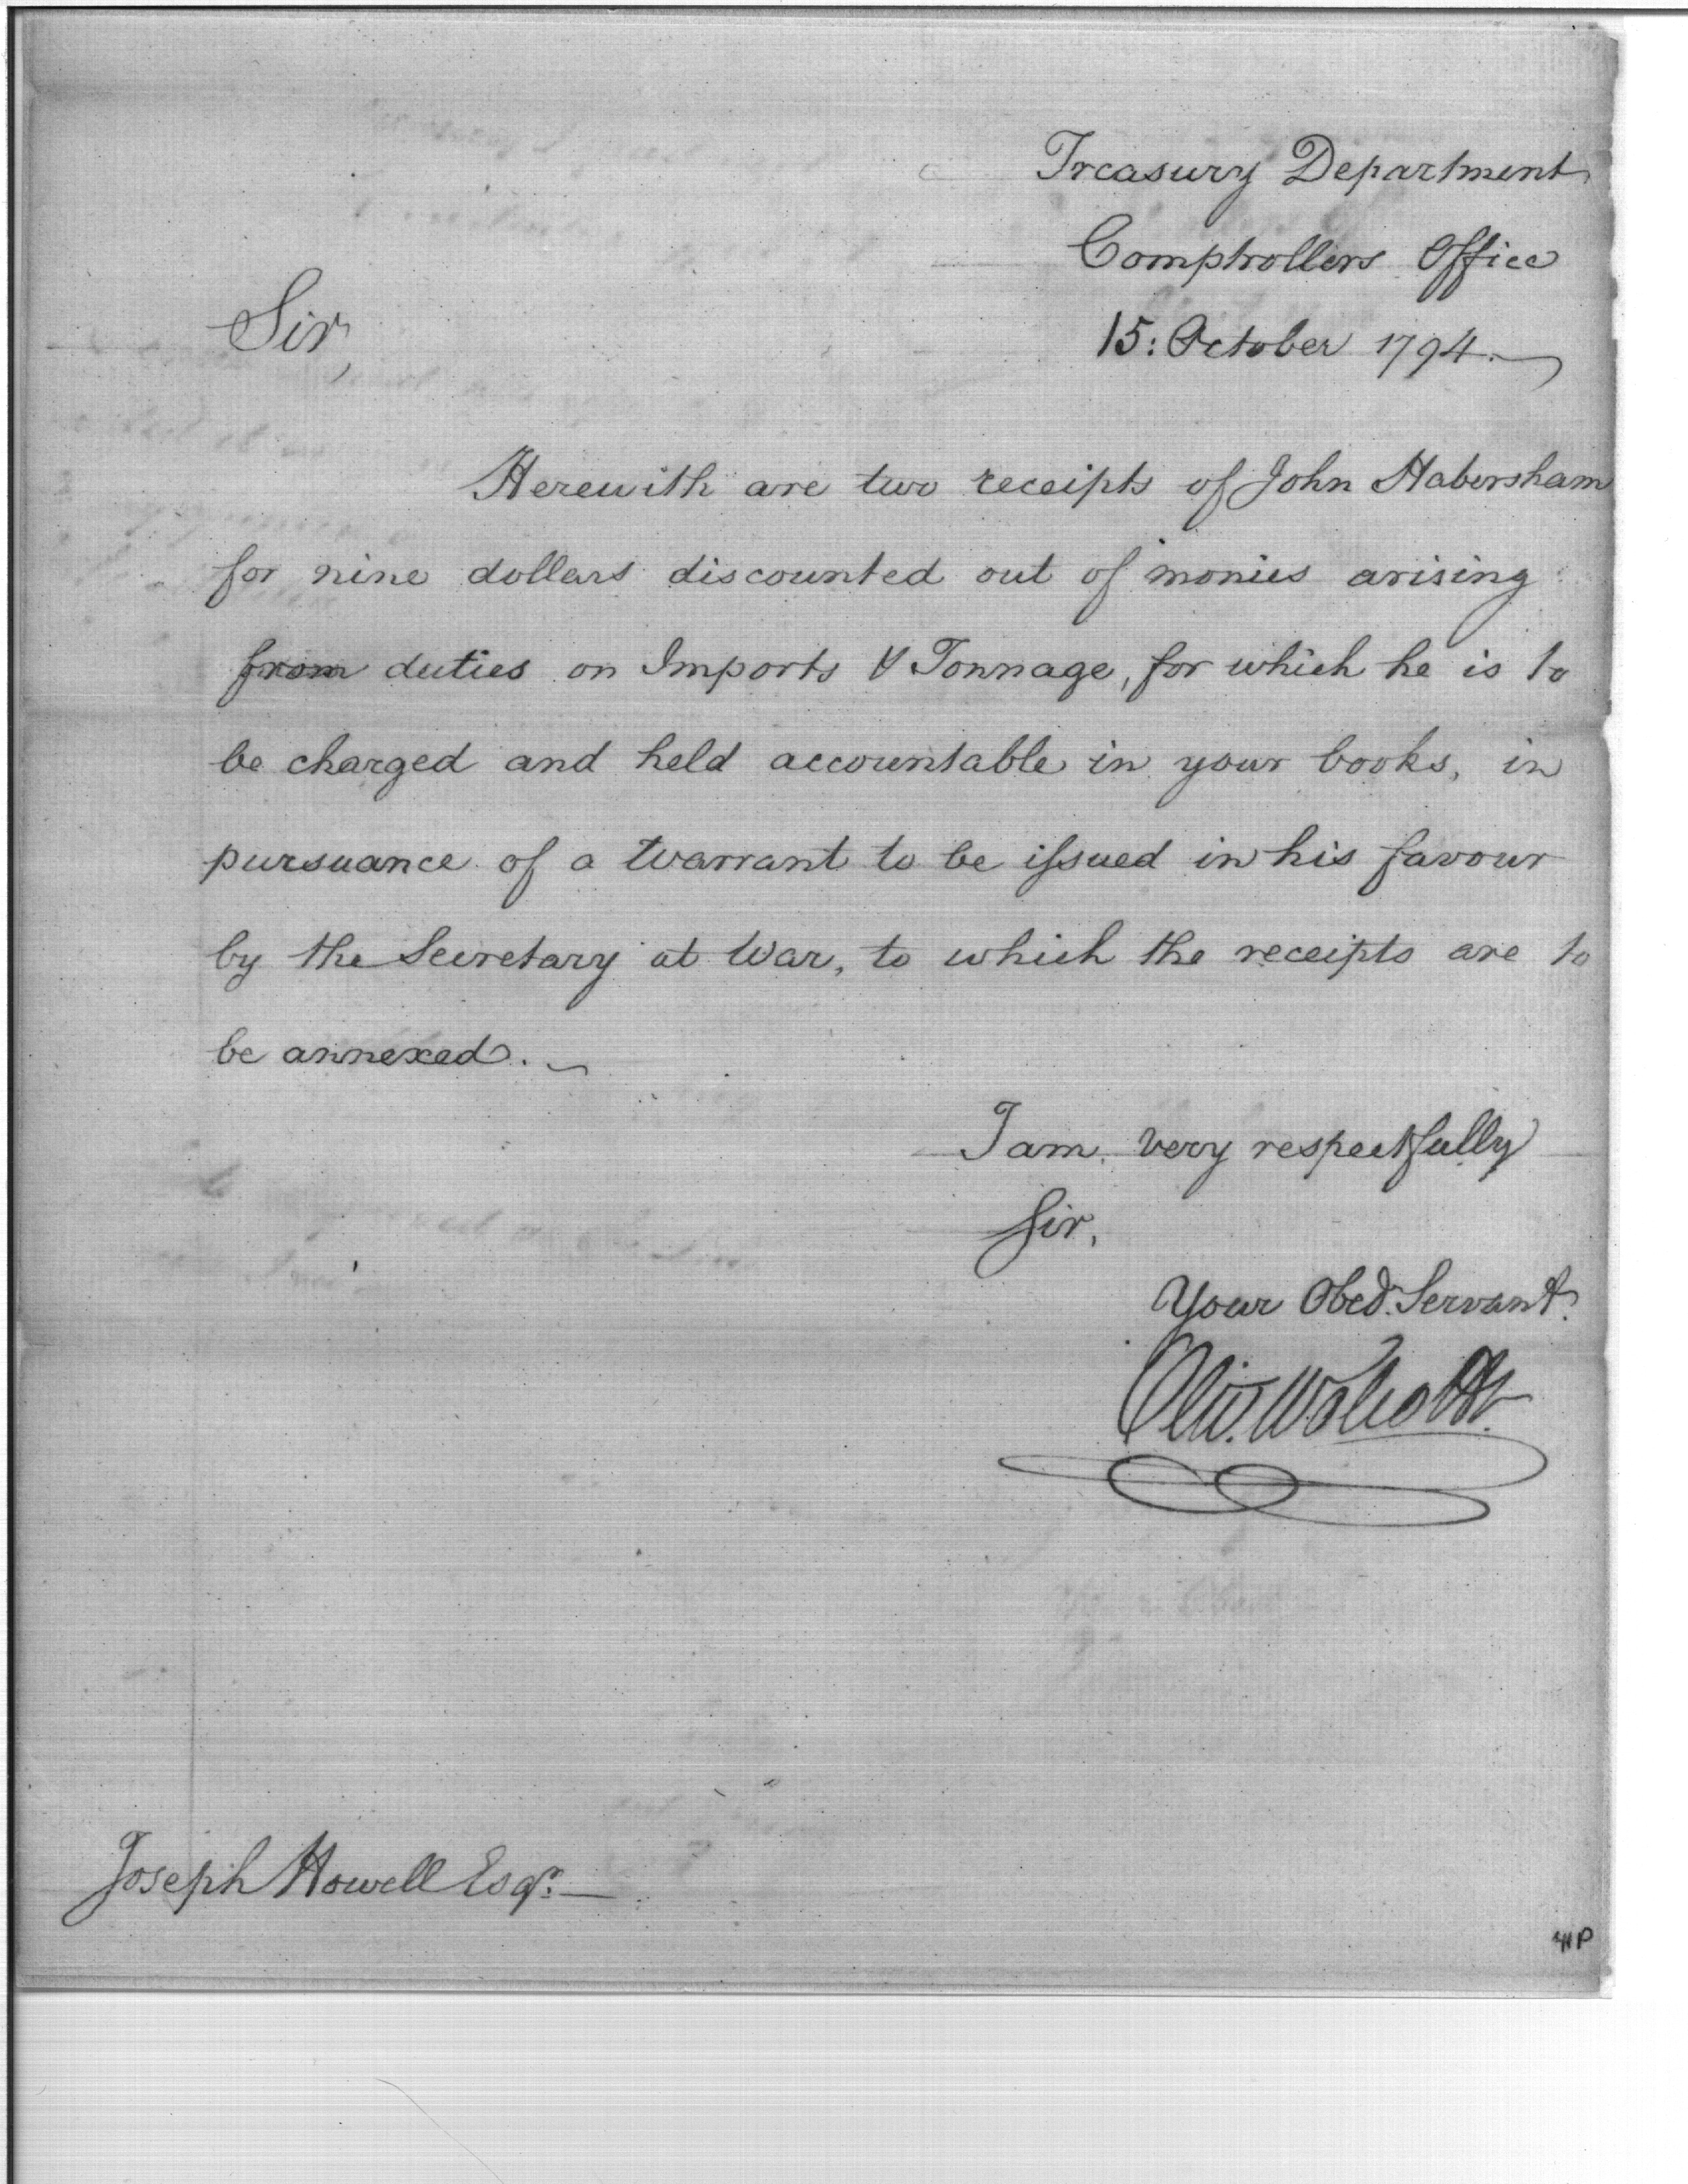 Treasury Department
Comptrollers Office
15: October 1794.
Sir,
Herewith are two receipts of John Habersham
for nine dollars discounted out of monies arising
from duties on Imports & Tonnage, for which he is to
be charged and held accountable in your books, in
pursuance of a Warrant to be issued in his favour
by the Secretary at War, to which the receipts are to
be annexed.
I am, very respectfully
Sir,
Your Obed. Servant.
Oliv. Wolcott Jr.
Joseph Howell Esqr.